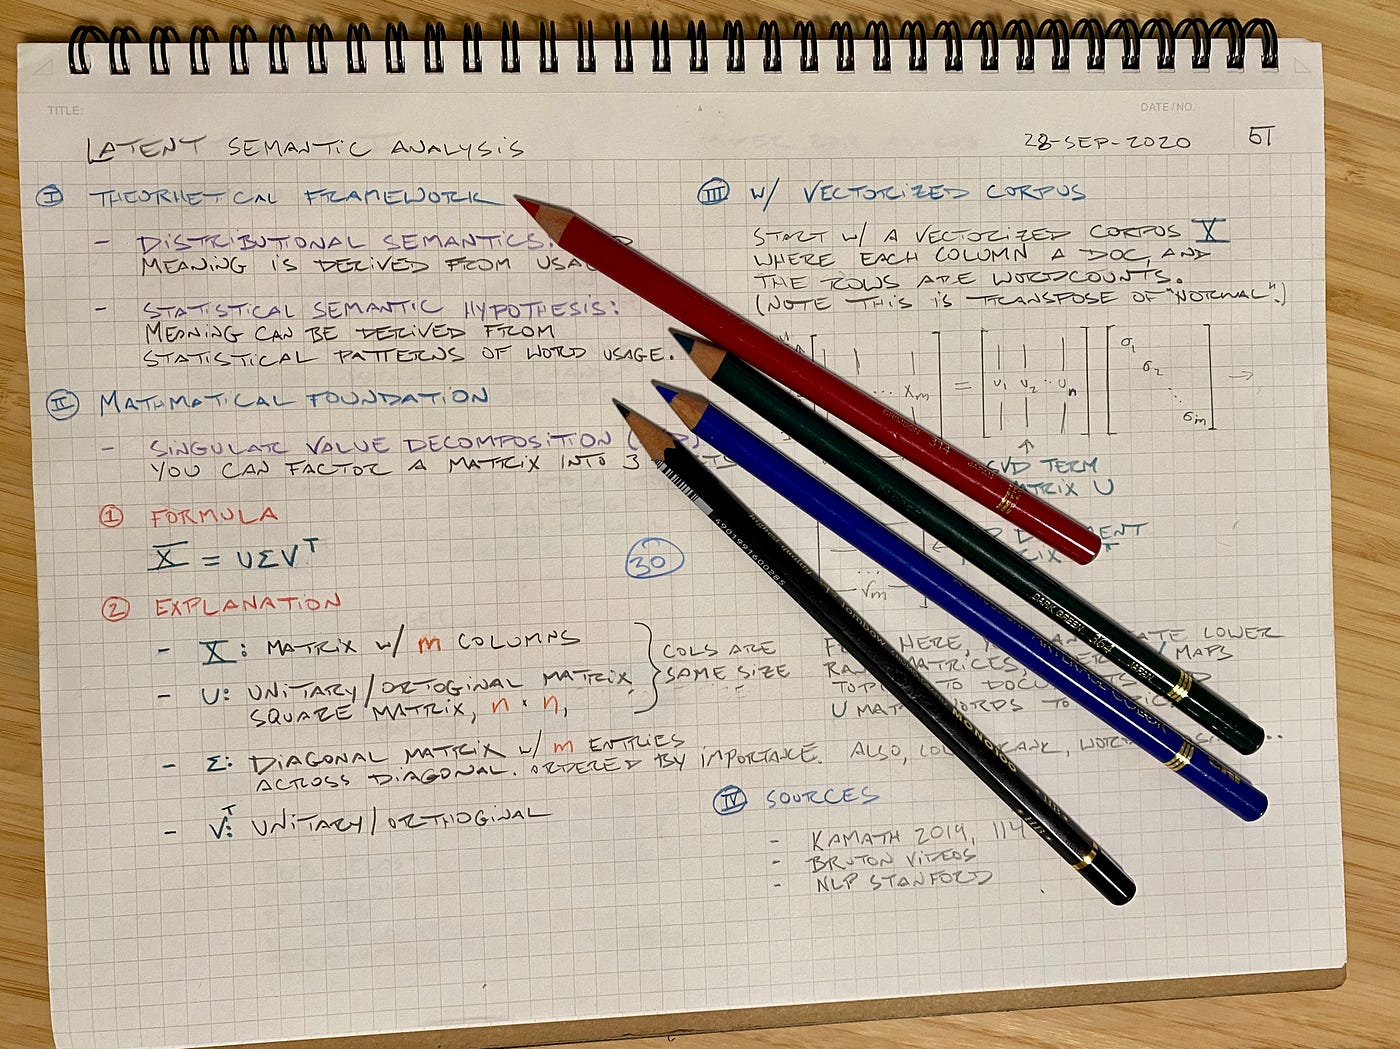 TITLE:
DATE/NO.
LATENT SEMANTIC ANALYSIS
28-SEP-2020
51
I THEORHETICAL FRAMEWORK
- DISTRIBUTIONAL SEMANTICS:
MEANING IS DERIVED FROM
- STATISTICAL SEMANTIC HYPOTHESIS:
MEANING CAN BE DERIVED FROM
STATISTICAL PATTERNS OF WORD USAGE.
II MATHMATICAL FOUNDATION
- SINGULAR VALUE DECOMPOSITION
YOU CAN FACTOR A MATRIX INTO 3
1 FORMULA
X = UΣV^T
2 EXPLANATION
- X: MATRIX W/ m COLUMNS
- U: UNITARY/ORTOGINAL MATRIX
SQUARE MATRIX, n · n,
} COLS ARE
SAME SIZE
- Σ: DIAGONAL MATRIX W/ m ENTRIES
ACROSS DIAGONAL. ORDERED BY IMPORTANCE. ALSO,
- V^T: UNITARY/ORTHOGINAL
30
III W/ VECTORIZED CORPUS
START W/ A VECTORIZED CORPUS X
WHERE EACH COLUMN A DOC, AND
THE ROWS ARE WORDCOUNTS.
(NOTE THIS IS TRANSPOSE OF "NORMAL".)
... Xm = U1 U2 ·· Un σ1 σ2 ⋱ σm →
↑
SVD TERM
U
... Vm
HERE, LOWER
MATRICES, MAPS
TO
U
IV SOURCES
- KAMATH 2019, 114
- BRUTON VIDEOS
- NLP STANFORD
CRIMSON 314 JAPAN
DARK GREEN
high quality
4901991600285
Tombow
MONO 100
HB